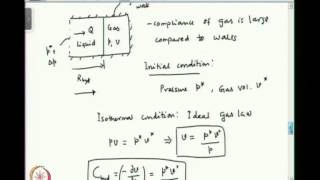 wall
Q Gas
Liquid p, v
p* + Δp
R_hyd
- compliance of gas is large
compared to walls
Initial condition:
Pressure p*, Gas vol. v*
Isothermal condition: Ideal gas law
PV = p* v* ⇒ v = p* v* / p
= (-∂v = p* v*